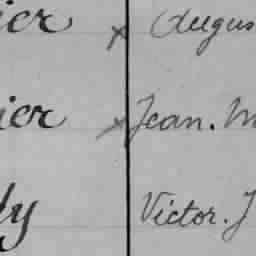 ier x Augus
ier x Jean. M
dy Victor. J